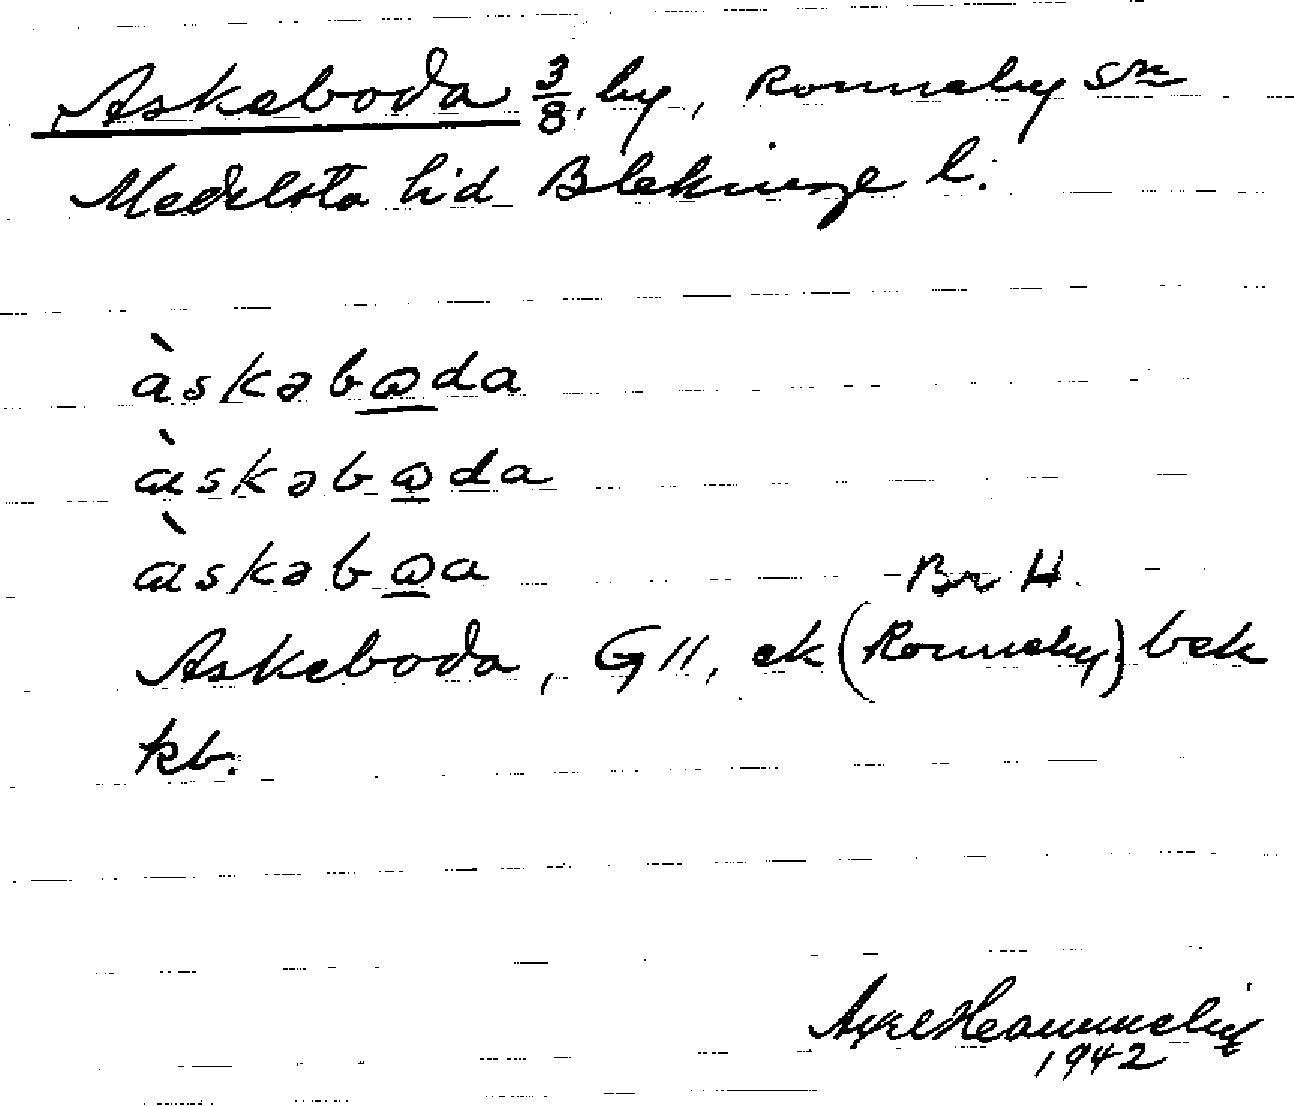 Askeboda 3/8, by, Ronneby sn
Medelsta hd Blekinge l.
àskəbωda
àskəbωda
àskəbωa Br H.
Askeboda, G 11, ek (Ronneby) bek
kb.
Axel
1942